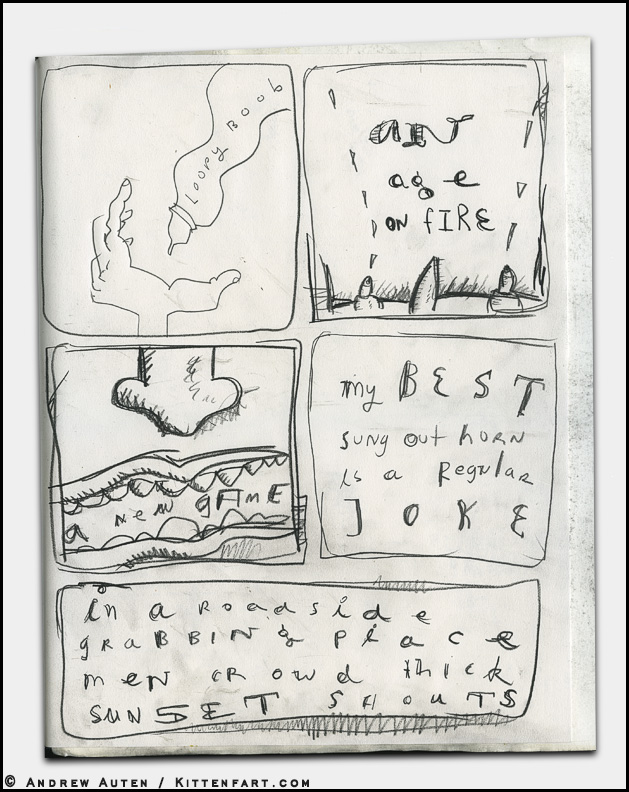 LOOPY BOOB
an
age
ON fIRE
a new gAmE
my BEST
sung out horn
is a Regular
JOKE
in a Roadside
gRaBBING place
men cRowd thick
SUNSET SHOUTS
© ANDREW AUTEN / KITTENFART.COM